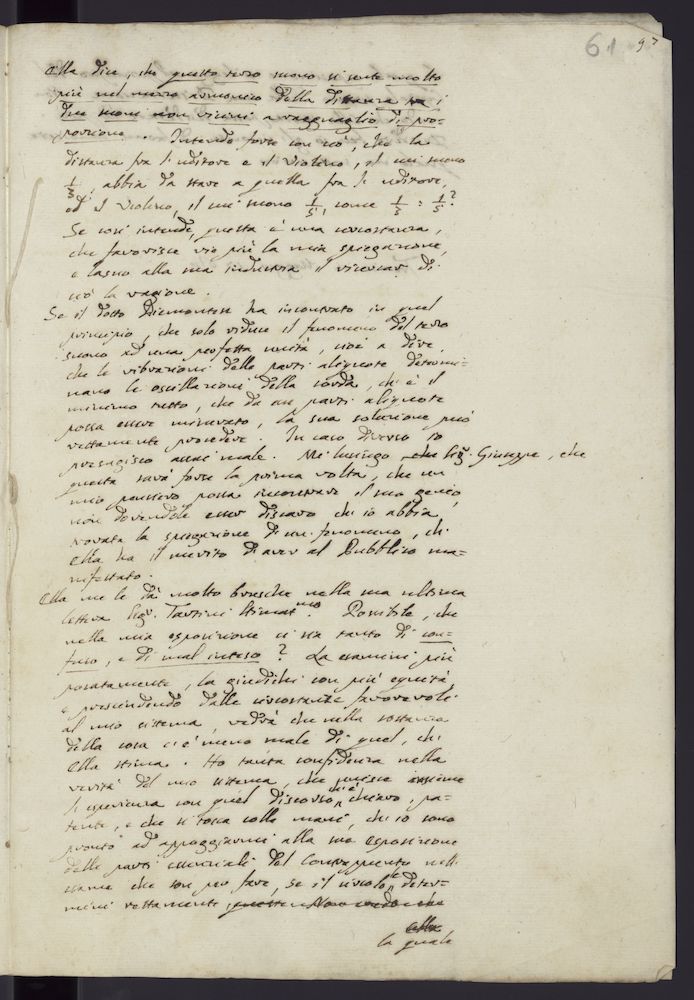 61 97
Ella dice, che questo terzo suono si sente molto
più nel mezzo armonico della distanza tra i
due suoni non vicini a ragguaglio di pro-
porzione. Intendo forse con ciò, che la
distanza fra l'uditore e il Violino, il cui suono
1/3, abbia da stare a quella fra l'uditore,
ed il Violino, il cui suono 1/5, come 1/3 : 1/5?
Se così intende, questa è una circostanza,
che favorisce vie più la mia spiegazione,
e lascio alla sua industria il ricercar di
ciò la ragione.
Se il dotto Piemontese ha incontrato in quel
principio, che solo riduce il fenomeno del terzo
suono ad una perfetta unità, cioè a dire,
che le vibrazioni delle parti aliquote determi-
nano le oscillazioni della corda, ch'è il
minimo tutto, che da sue parti aliquote
possa esser misurato, la sua soluzione può
rettamente procedere. In caso diverso io
presagisco assai male. Me lusingo che Sigr. Giuseppe, che
questa sarà forse la prima volta, che un
mio pensiero possa incontrare il suo genio,
non dovendole esser discaro ch'io abbia
trovata la spiegazione di un fenomeno, ch'
Ella ha il merito di aver al Pubblico ma-
nifestato.
Ella me le dà molto brusche nella sua ultima
lettera Sigr. Tartini Stimatmo. Possibile, che
nella mia esposizione ci sia tanto di con-
fuso, e di mal inteso? La esamini più
posatamente, la giudichi con più equità
e prescindendo dalle circostanze favorevoli
al mio sistema, vedrà che nella sostanza
della cosa ci è meno male di quel, ch'
Ella stima. Ho tanta confidenza nella
verità del mio sistema, che unisce insieme
l'esperienza con quel discorso, ch'è chiaro, pa-
tente, e che si tocca colle mani, ch'io sono
pronto ad appoggiarmi alla sua esposizione
delle parti essenziali del Contrappunto nell'
esame che son per fare, se il circolo le deter-
mini rettamente, questa Non vedo che
alla
la quale